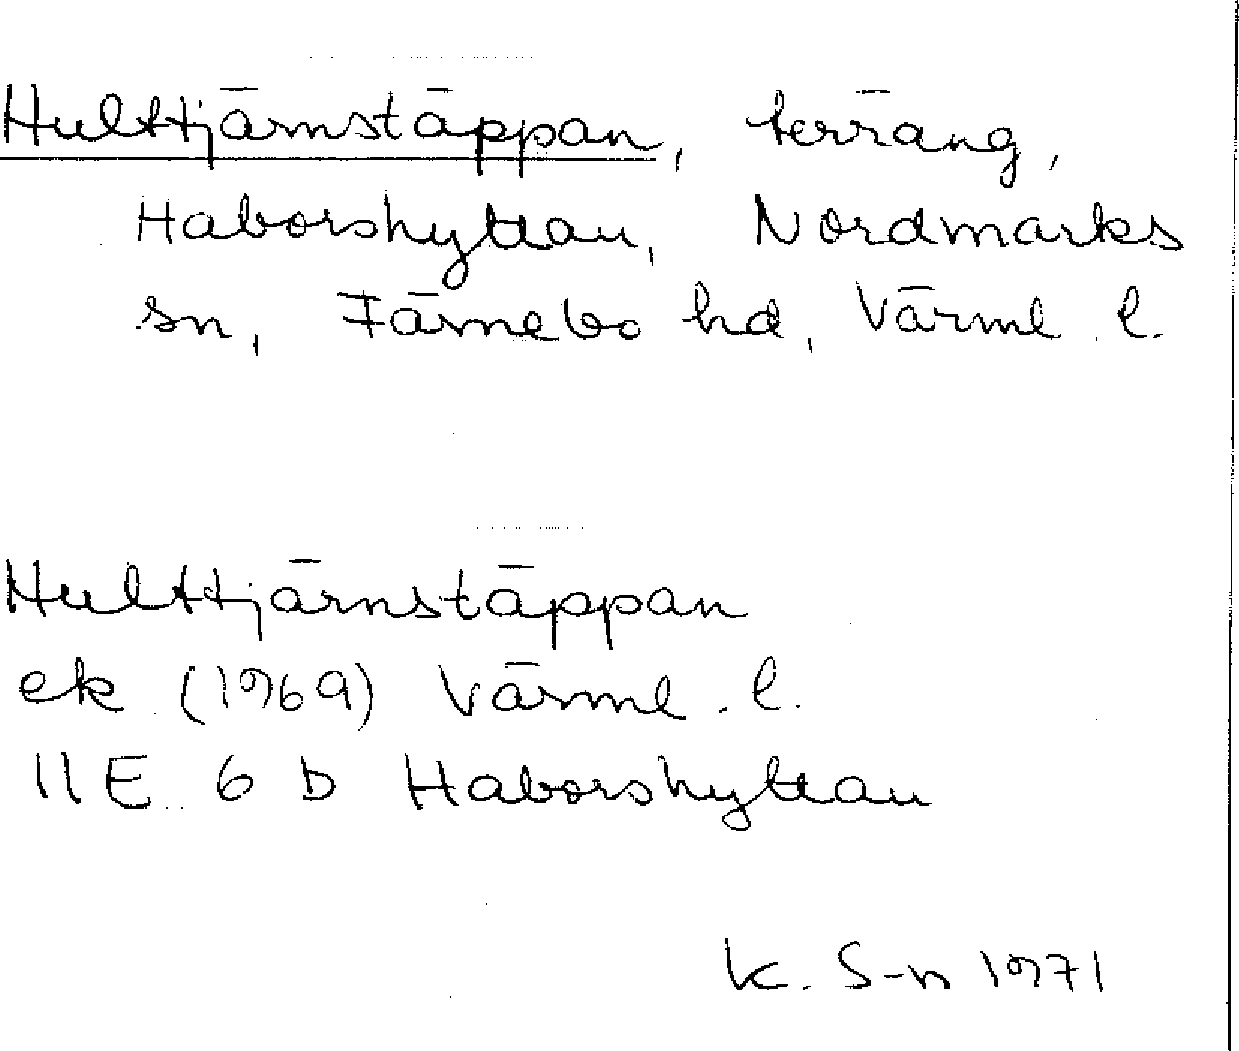 Hulttjärnstäppan, terräng,
Haborshyttan, Nordmarks
sn, Färnebo hd, Värml. l.
Hulttjärnstäppan
ek (1969) Värml. l.
11 E 6 b Haborshyttan
K. S-n 1971